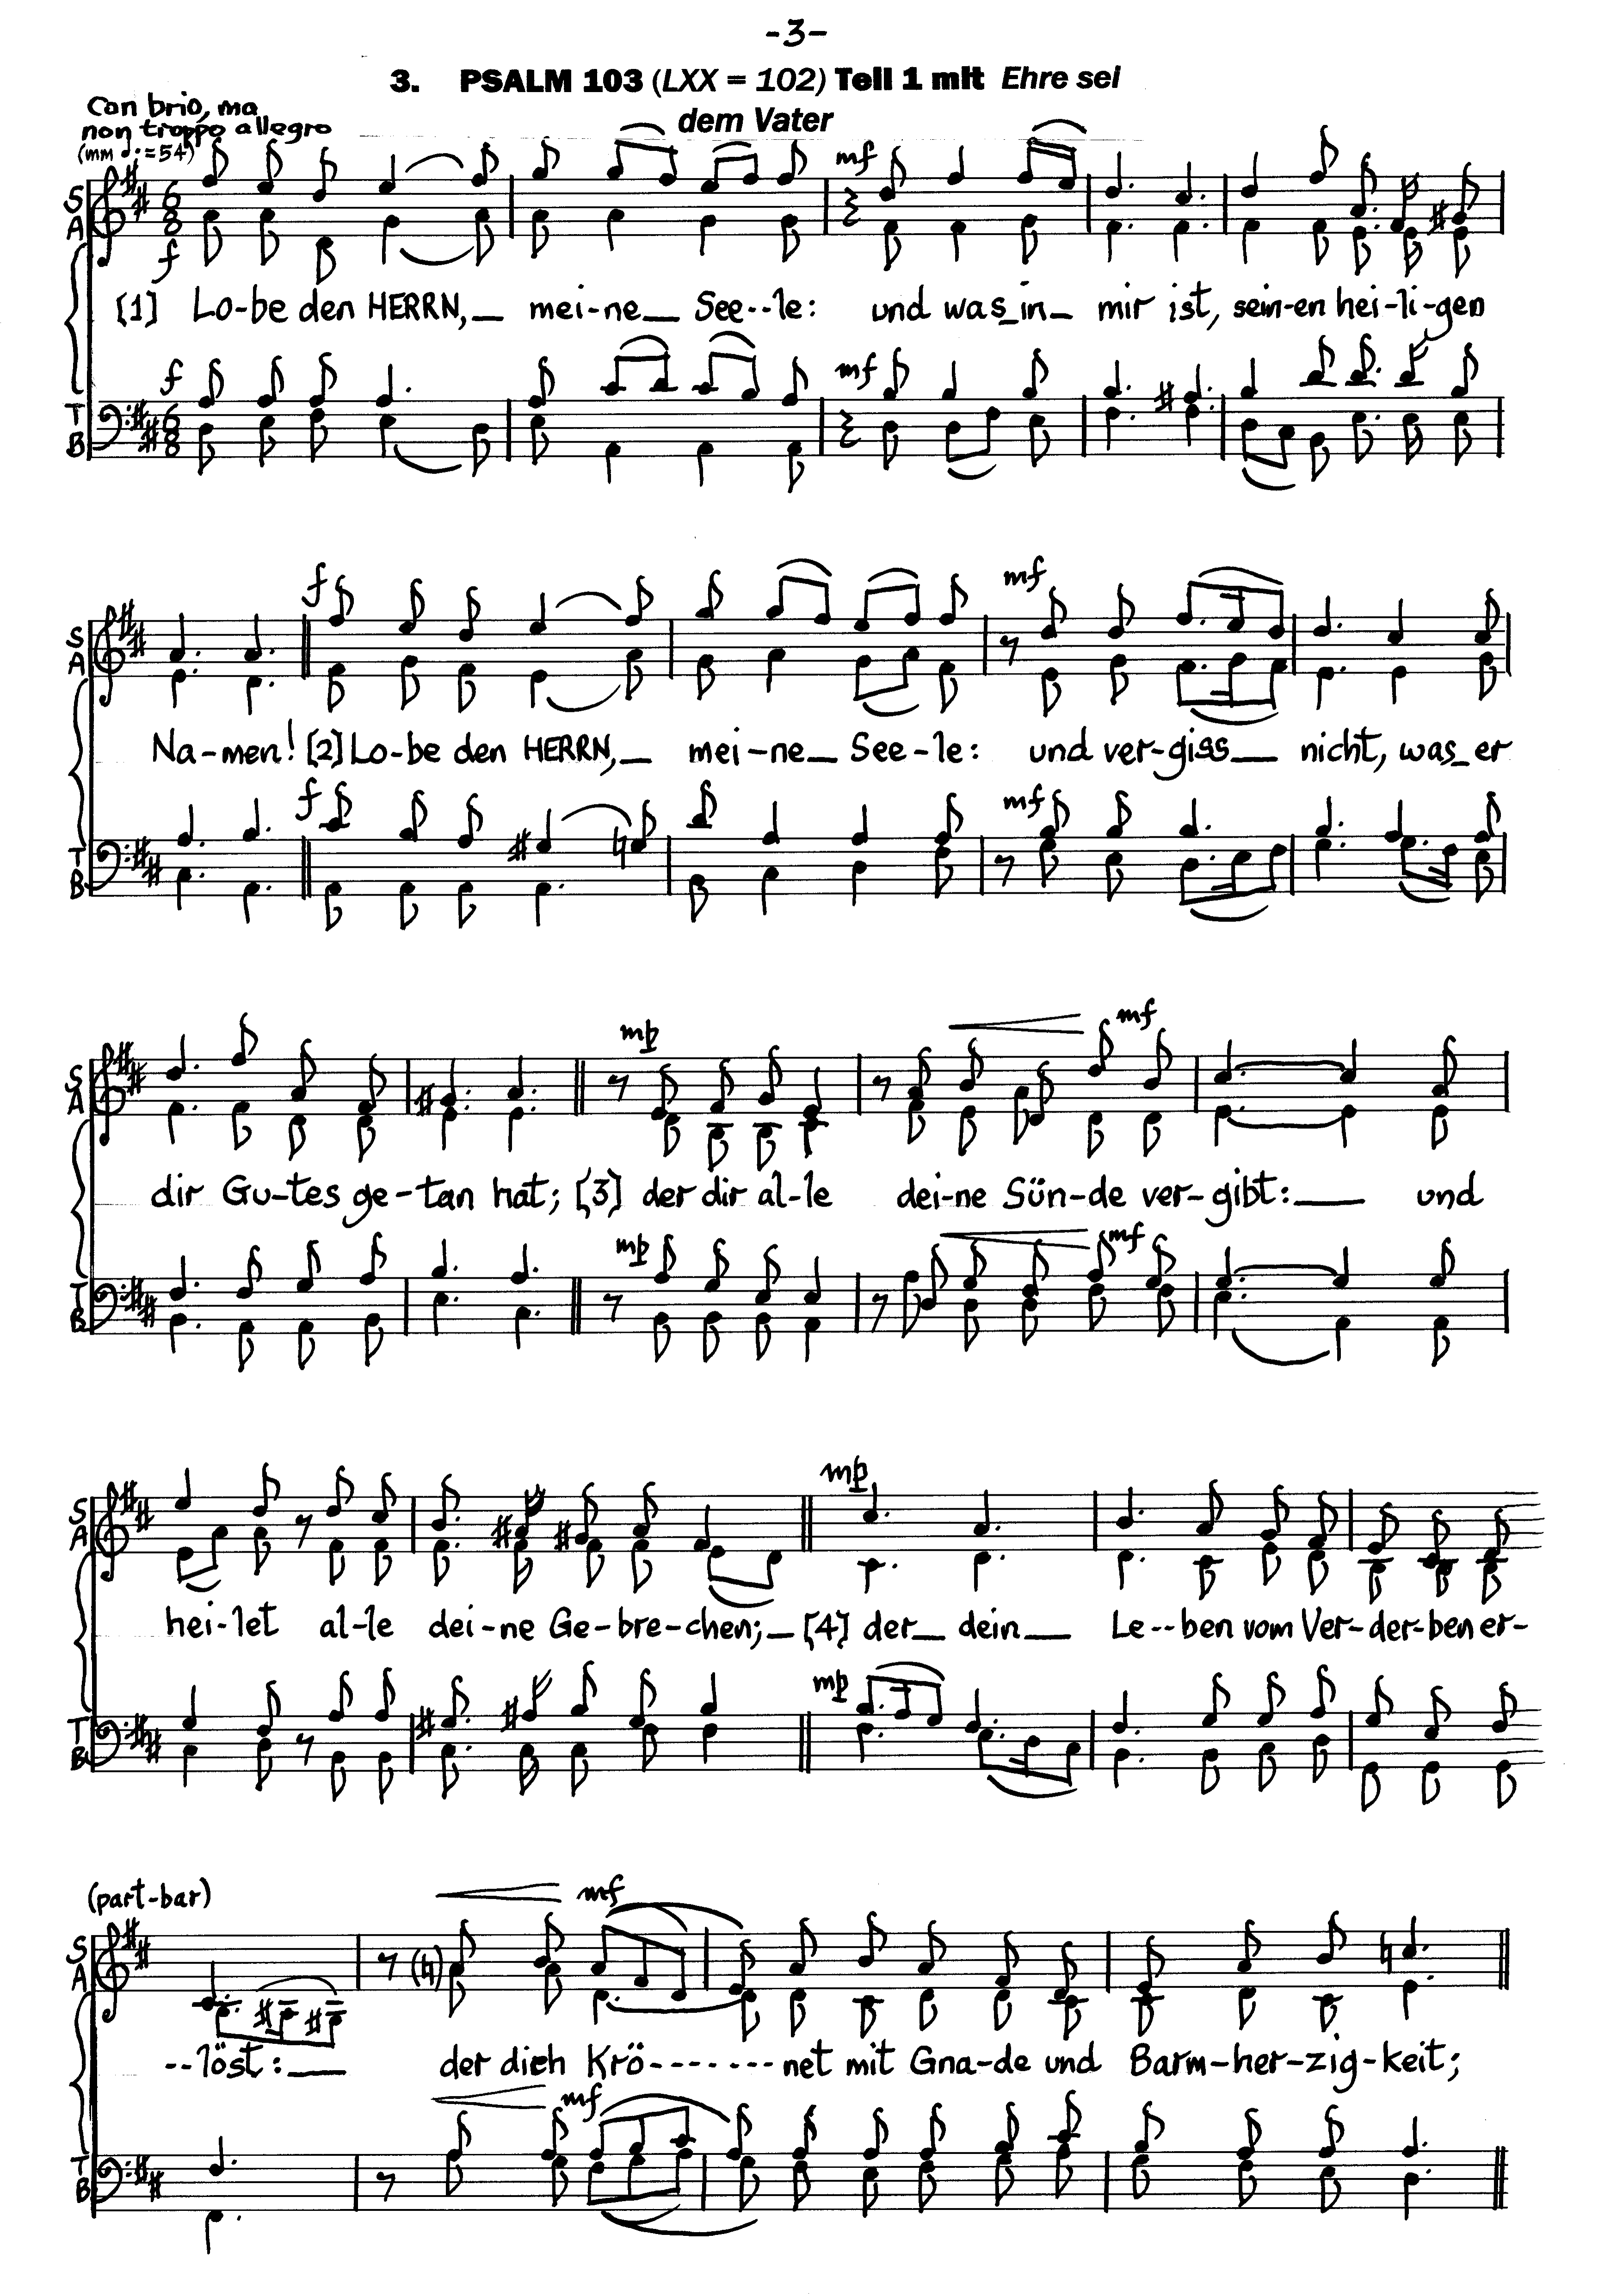 -3-
3. PSALM 103 (LXX = 102) Teil 1 mit Ehre sei
dem Vater
Con brio, ma
non troppo allegro
(mm ♩. = 54)
mf
S
A
6
8
f
[1] Lo-be den HERRN,_ mei-ne_ See--le: und was_in_ mir ist, sein-en hei-li-gen
f mf
T
B
6
8
f mf
S
A
Na-men! [2] Lo-be den HERRN,_ mei-ne_ See-le: und ver-giss_ nicht, was_er
f mf
T
B
mp mf
S
A
dir Gu-tes ge-tan hat; [3] der dir al-le dei-ne Sün-de ver-gibt:_ und
mp mf
T
B
mp
S
A
hei-let al-le dei-ne Ge-bre-chen;_ [4] der_ dein_ Le--ben vom Ver-der-ben er-
mp
T
B
(part-bar) mf
S
A
--löst:_ der dich Krö-------net mit Gna-de und Barm-her-zig-keit;
mf
T
B